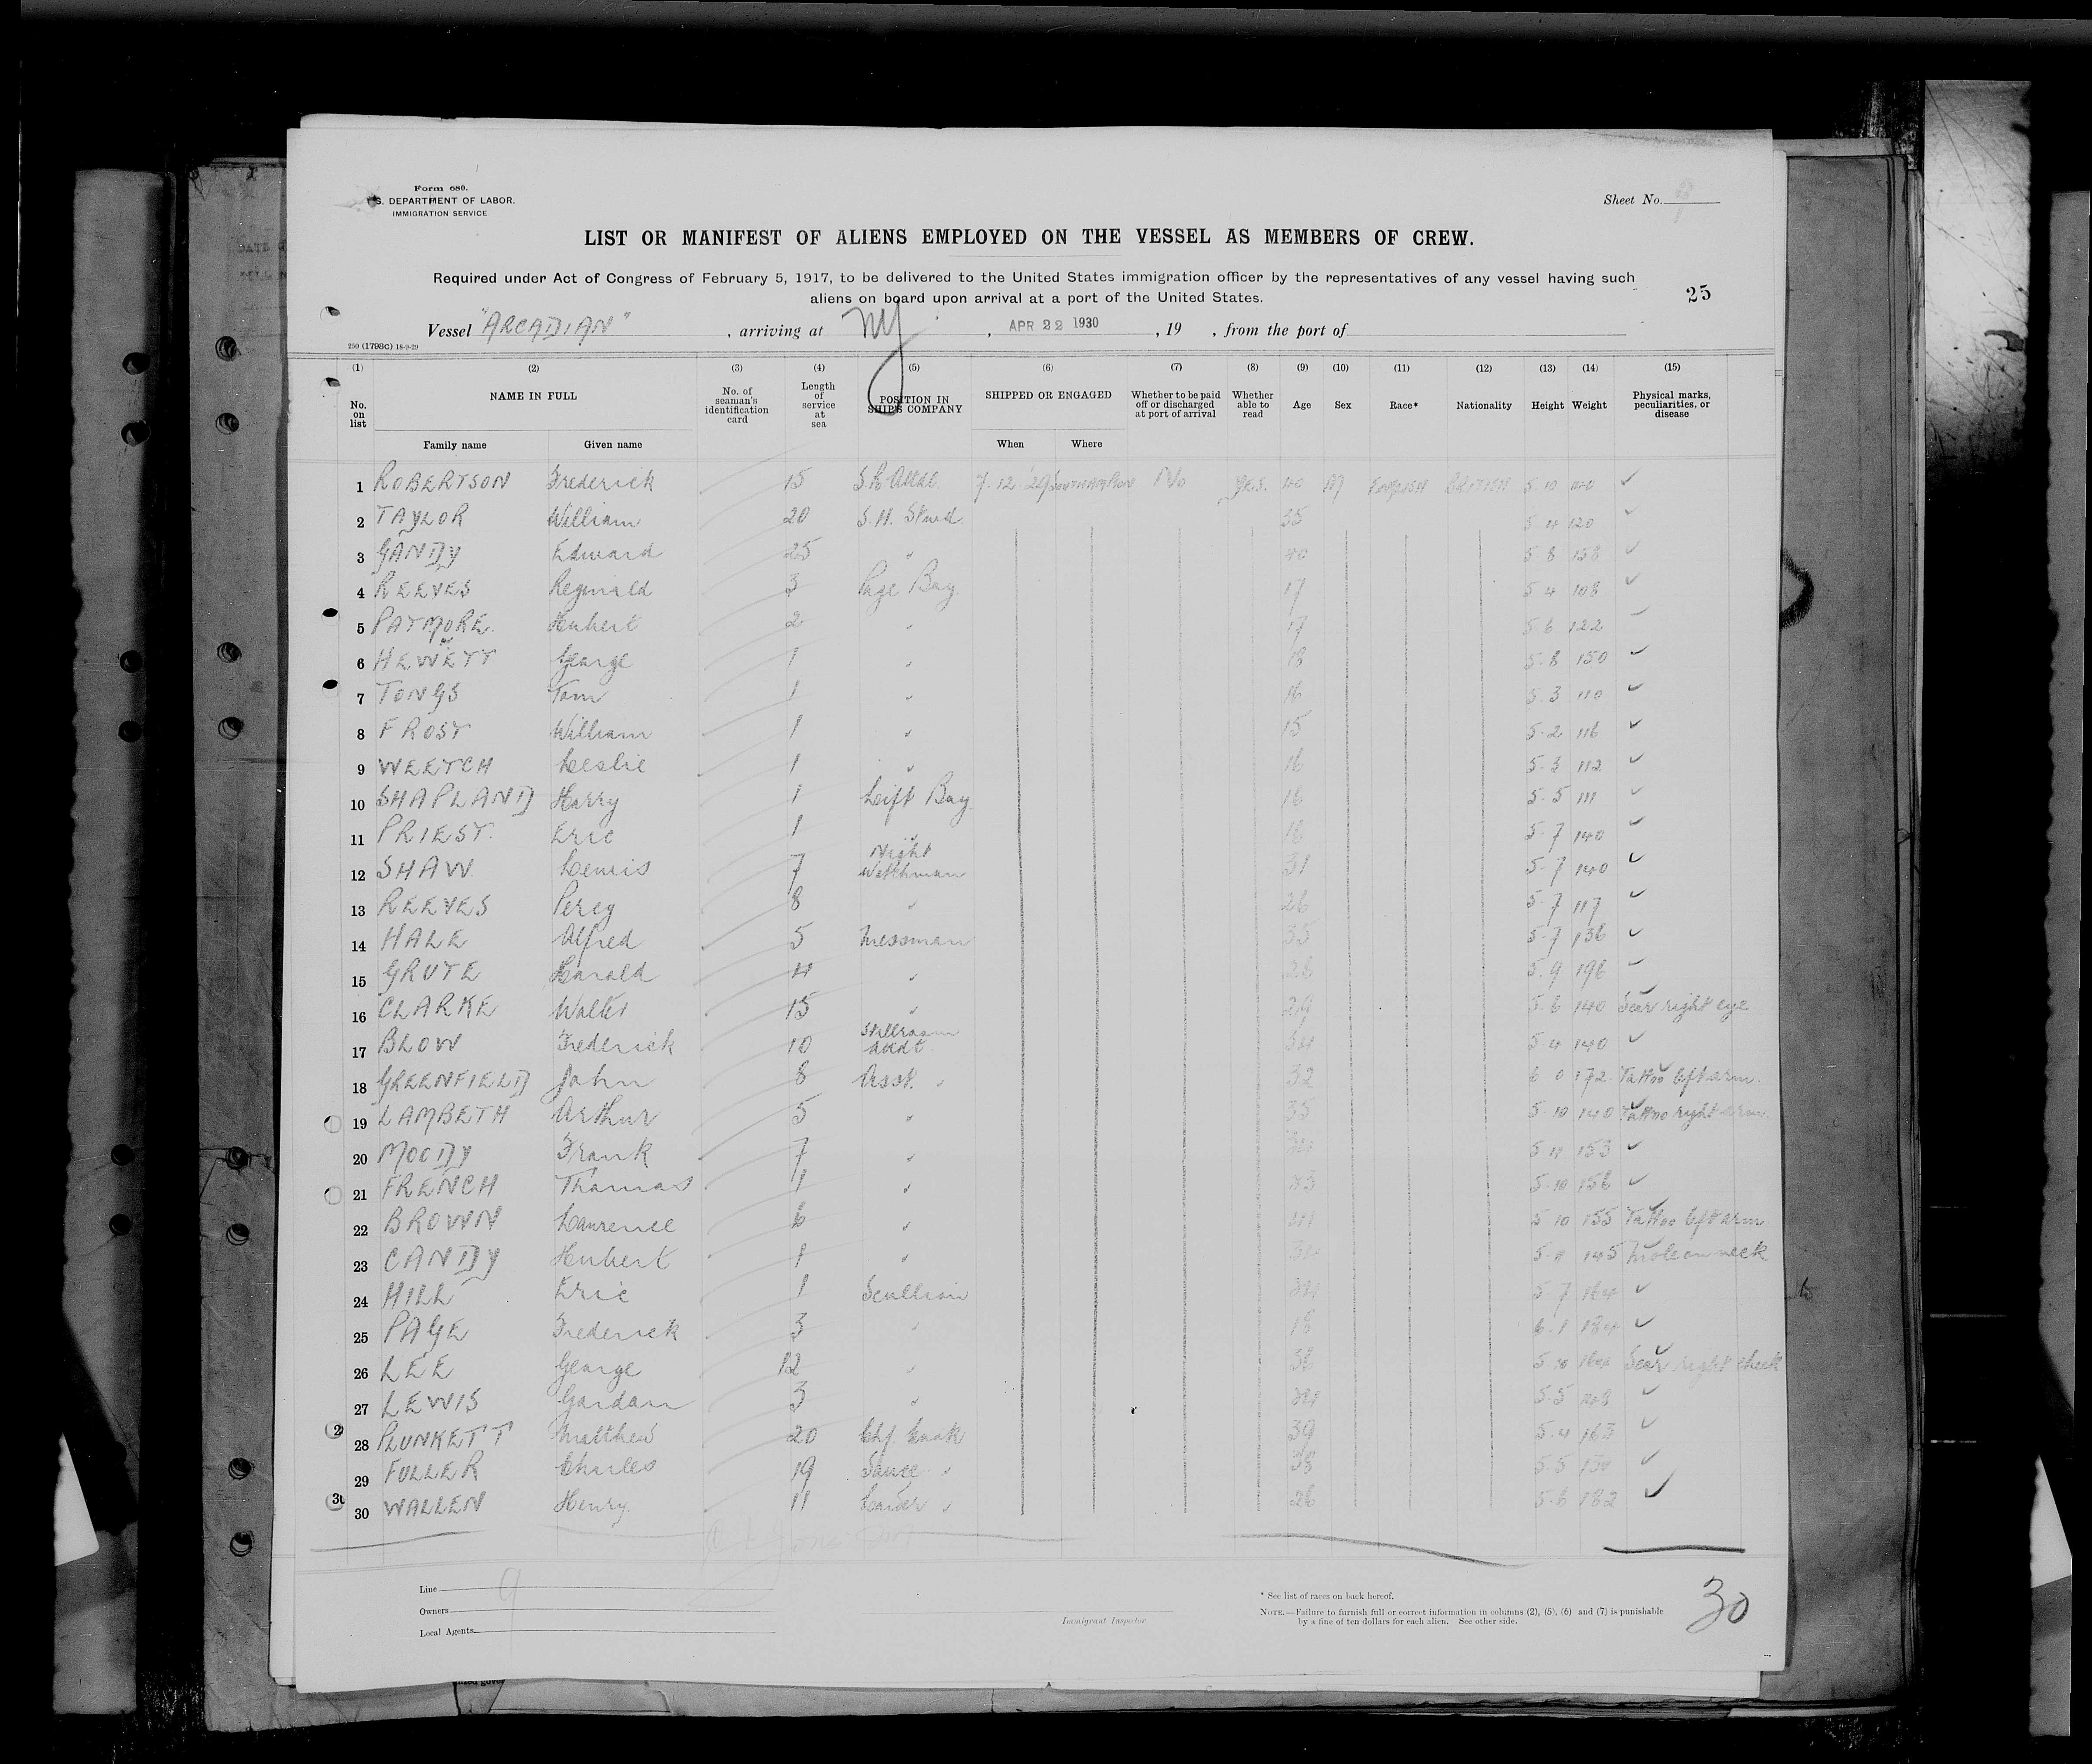 Form 680.
U.S. DEPARTMENT OF LABOR.
IMMIGRATION SERVICE
Sheet No.
LIST OR MANIFEST OF ALIENS EMPLOYED ON THE VESSEL AS MEMBERS OF CREW.
Required under Act of Congress of February 5, 1917, to be delivered to the United States immigration officer by the representatives of any vessel having such
aliens on board upon arrival at a port of the United States.
25
Vessel "ARCADIAN" , arriving at NY , APR 22 1930 , 19 , from the port of
250 (1798C) 18-9-29
(1) (2) (3) (4) (5) (6) (7) (8) (9) (10) (11) (12) (13) (14) (15)
No. on list NAME IN FULL No. of seaman's identification card Length of service at sea POSITION IN SHIP'S COMPANY SHIPPED OR ENGAGED Whether to be paid off or discharged at port of arrival Whether able to read Age Sex Race* Nationality Height Weight Physical marks, peculiarities, or disease
Family name Given name When Where
1 ROBERTSON Frederick 15 7.12.29 SOUTHAMPTON No YES. 40 M ENGLISH BRITISH 5 10 ✓
2 TAYLOR William 20 35 5 4 120 ✓
3 GANDY Edward 25 " 40 5 8 158 ✓
4 REEVES Reginald 3 Page Boy 17 5 4 108 ✓
5 PATMORE. Hubert 2 " 17 5 6 122 ✓
6 HEWETT George 1 " 18 5.8 150 ✓
7 TONGS Tom 1 " 16 5.3 110 ✓
8 FROST William 1 " 15 5.2 116 ✓
9 WEETCH Leslie 1 " 16 5.3 112 ✓
10 SHAPLAND Harry 1 Lift Boy 16 5.5 111 ✓
11 PRIEST. Eric 1 " 18 5.7 140 ✓
12 SHAW Lewis 7 Night Watchman 31 5.7 140 ✓
13 REEVES Percy 8 " 26 5.7 117 ✓
14 HALE Alfred 5 Messman 35 5.7 136 ✓
15 GRUTE Harold 4 " 26 5.9 196 ✓
16 CLARKE Walter 15 " 29 5.6 140 Scar right eye
17 BLOW Frederick 10 Stillroom Attdt. 34 5.4 140 ✓
18 GREENFIELD John 8 Asst. " 32 6 0 172 Tattoo left arm.
19 LAMBETH Arthur 5 " 35 5.10 140 Tattoo right arm.
20 MOODY Frank 7 " 153 ✓
21 FRENCH Thomas 1 " 5.10 156 ✓
22 BROWN Laurence 6 " 5 10 155 Tattoo left arm
23 CANDY Hubert 1 " 145 Mole on neck
24 HILL Eric 1 Scullion 5 7 164 ✓
25 PAGE Frederick 3 " 18 6.1 184 ✓
26 LEE George 12 " 36 5.10 Scar right cheek
27 LEWIS Gordon 3 " 5.5 ✓
28 PLUNKETT Matthew 20 Chf. Cook 39 5.4 163 ✓
29 FULLER Charles 19 Sauce " 38 5.5 130 ✓
30 WALLEN Henry. 11 Larder " 26 5.6 182 ✓
Line
Owners
Local Agents
Immigrant Inspector
* See list of races on back hereof.
NOTE.—Failure to furnish full or correct information in columns (2), (5), (6) and (7) is punishable
by a fine of ten dollars for each alien. See other side.
30